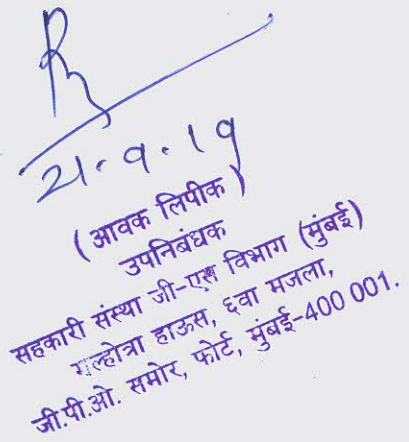 21.9.19
(आवक लिपीक)
उपनिबंधक
सहकारी संस्था जी-एस विभाग (मुंबई)
मल्होत्रा हाऊस, ६वा मजला,
जी.पी.ओ. समोर, फोर्ट, मुंबई-400 001.